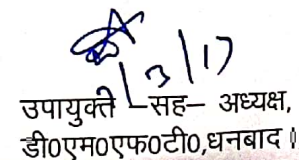 /3/17
उपायुक्त –सह– अध्यक्ष,
डी0एम0एफ0टी0,धनबाद ।